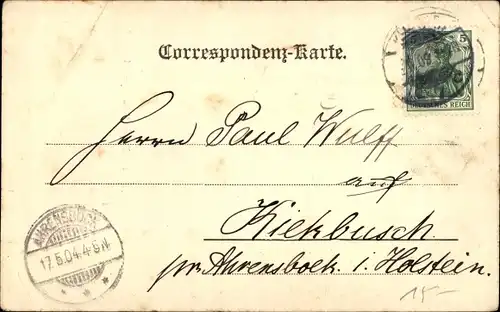 Correspondenz-Karte.
5
DEUTSCHES REICH
Herrn Paul Wulff
auf
Kiekbusch
pr. Ahrensboek i. Holstein.
AHRENSBÖK
17.5.04.4-5N
15-